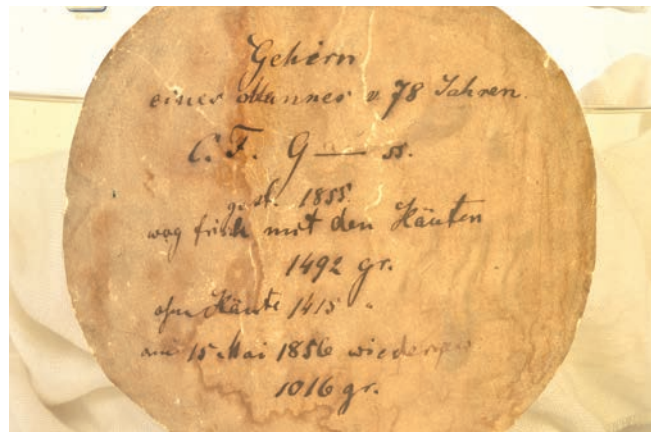 Gehirn
eines Mannes v 78 Jahren.
C. F. G— ss.
gest. 1855.
wog frisch mit den Häuten
1492 gr.
ohne Häute 1415 "
am 15 Mai 1856 wieder
1016 gr.